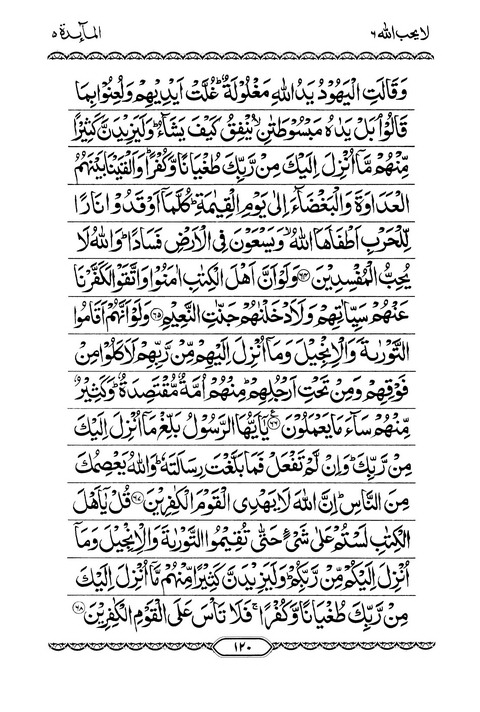 لا يحب الله ٦
المآئدة ٥
وَقَالَتِ الْيَهُوْدُ يَدُ اللّٰهِ مَغْلُوْلَةٌ ؕ غُلَّتْ اَيْدِيْهِمْ وَلُعِنُوْا بِمَا
قَالُوْا ۘ بَلْ يَدٰهُ مَبْسُوْطَتٰنِ ۙ يُنْفِقُ كَيْفَ يَشَآءُ ؕ وَلَيَزِيْدَنَّ كَثِيْرًا
مِّنْهُمْ مَّاۤ اُنْزِلَ اِلَيْكَ مِنْ رَّبِّكَ طُغْيَانًا وَّكُفْرًا ؕ وَاَلْقَيْنَا بَيْنَهُمُ
الْعَدَاوَةَ وَالْبَغْضَآءَ اِلٰى يَوْمِ الْقِيٰمَةِ ؕ كُلَّمَاۤ اَوْقَدُوْا نَارًا
لِّلْحَرْبِ اَطْفَاَهَا اللّٰهُ ۙ وَيَسْعَوْنَ فِى الْاَرْضِ فَسَادًا ؕ وَاللّٰهُ لَا
يُحِبُّ الْمُفْسِدِيْنَ ﴿۶۴﴾ وَلَوْ اَنَّ اَهْلَ الْكِتٰبِ اٰمَنُوْا وَاتَّقَوْا لَكَفَّرْنَا
عَنْهُمْ سَيِّاٰتِهِمْ وَلَاَدْخَلْنٰهُمْ جَنّٰتِ النَّعِيْمِ ﴿۶۵﴾ وَلَوْ اَنَّهُمْ اَقَامُوا
التَّوْرٰىةَ وَالْاِنْجِيْلَ وَمَاۤ اُنْزِلَ اِلَيْهِمْ مِّنْ رَّبِّهِمْ لَاَكَلُوْا مِنْ
فَوْقِهِمْ وَمِنْ تَحْتِ اَرْجُلِهِمْ ؕ مِنْهُمْ اُمَّةٌ مُّقْتَصِدَةٌ ؕ وَكَثِيْرٌ
مِّنْهُمْ سَآءَ مَا يَعْمَلُوْنَ ﴿۶۶﴾ يٰۤاَيُّهَا الرَّسُوْلُ بَلِّغْ مَاۤ اُنْزِلَ اِلَيْكَ
مِنْ رَّبِّكَ ؕ وَاِنْ لَّمْ تَفْعَلْ فَمَا بَلَّغْتَ رِسَالَتَهٗ ؕ وَاللّٰهُ يَعْصِمُكَ
مِنَ النَّاسِ ؕ اِنَّ اللّٰهَ لَا يَهْدِى الْقَوْمَ الْكٰفِرِيْنَ ﴿۶۷﴾ قُلْ يٰۤاَهْلَ
الْكِتٰبِ لَسْتُمْ عَلٰى شَىْءٍ حَتّٰى تُقِيْمُوا التَّوْرٰىةَ وَالْاِنْجِيْلَ وَمَاۤ
اُنْزِلَ اِلَيْكُمْ مِّنْ رَّبِّكُمْ ؕ وَلَيَزِيْدَنَّ كَثِيْرًا مِّنْهُمْ مَّاۤ اُنْزِلَ اِلَيْكَ
مِنْ رَّبِّكَ طُغْيَانًا وَّكُفْرًا ۚ فَلَا تَاْسَ عَلَى الْقَوْمِ الْكٰفِرِيْنَ ﴿۶۸﴾
١٢٠